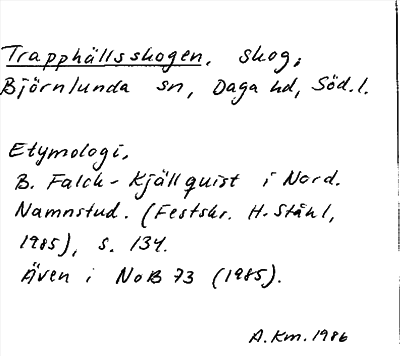 Trapphällsskogen, skog,
Björnlunda sn, Daga hd, Söd.l.
Etymologi.
B. Falck-Kjällquist i Nord.
Namnstud. (Festskr. H. Ståhl,
1985), s. 134.
Även i NoB 73 (1985).
A.Km. 1986